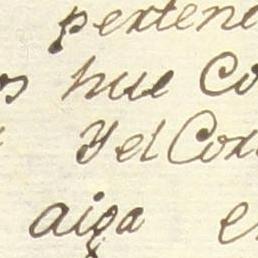 pertene
os hue Co
Y el Cor
aiga e